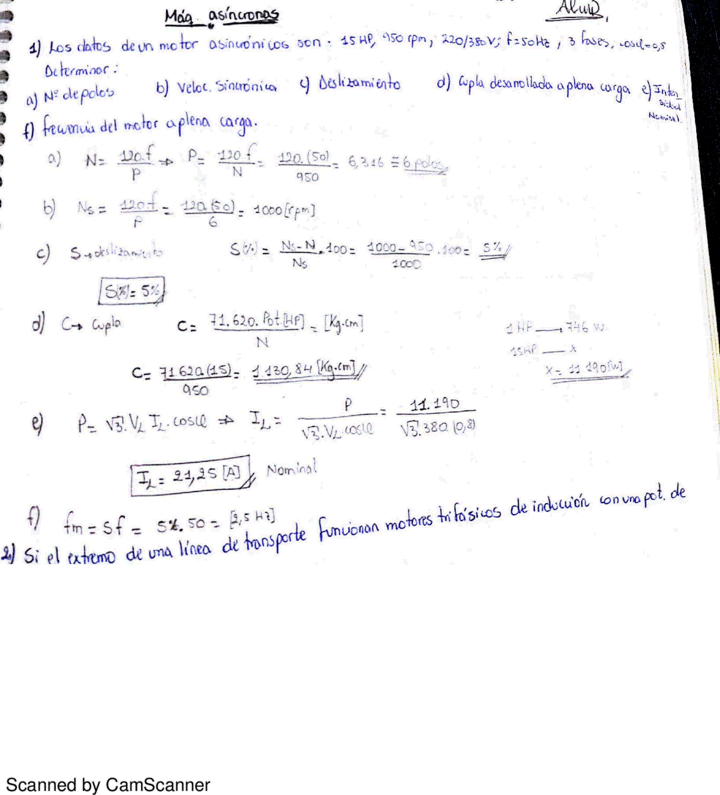 Máq. asíncronas
1) Los datos de un motor asincrónicos son: 15 HP, 950 rpm, 220/380V; f=50Hz, 3 fases,
Determinar:
a) Nº de polos b) Veloc. Sincrónica c) Deslizamiento d) Cupla desarrollada a plena carga e) Inten
sidad
Nominal
f) frecuencia del motor a plena carga.
a) N = 120.f / P ⇒ P = 120 f / N = 120.(50) / 950 = 6,316 ≅ 6 polos
b) Ns = 120 f / P = 120.(50) / 6 = 1000 [rpm]
c) S → deslizamiento S(%) = Ns - N / Ns . 100 = 1000 - 950 / 1000 . 100 = 5%
S(%) = 5%
d) C → Cupla C = 71.620. Pot [HP] / N = [Kg.cm]
1 HP → 746 W
15HP — x
x = 11 190 [W]
C = 71620.(15) / 950 = 1 130,84 [Kg.cm]
e) P = √3. V_L I_L. cosφ ⇒ I_L = P / √3. V_L cosφ = 11.190 / √3. 380 (0,8)
I_L = 21,25 [A] Nominal
f) fm = Sf = 5%. 50 = [2,5 Hz]
2) Si el extremo de una línea de transporte funcionan motores trifásicos de inducción con una pot. de
Scanned by CamScanner